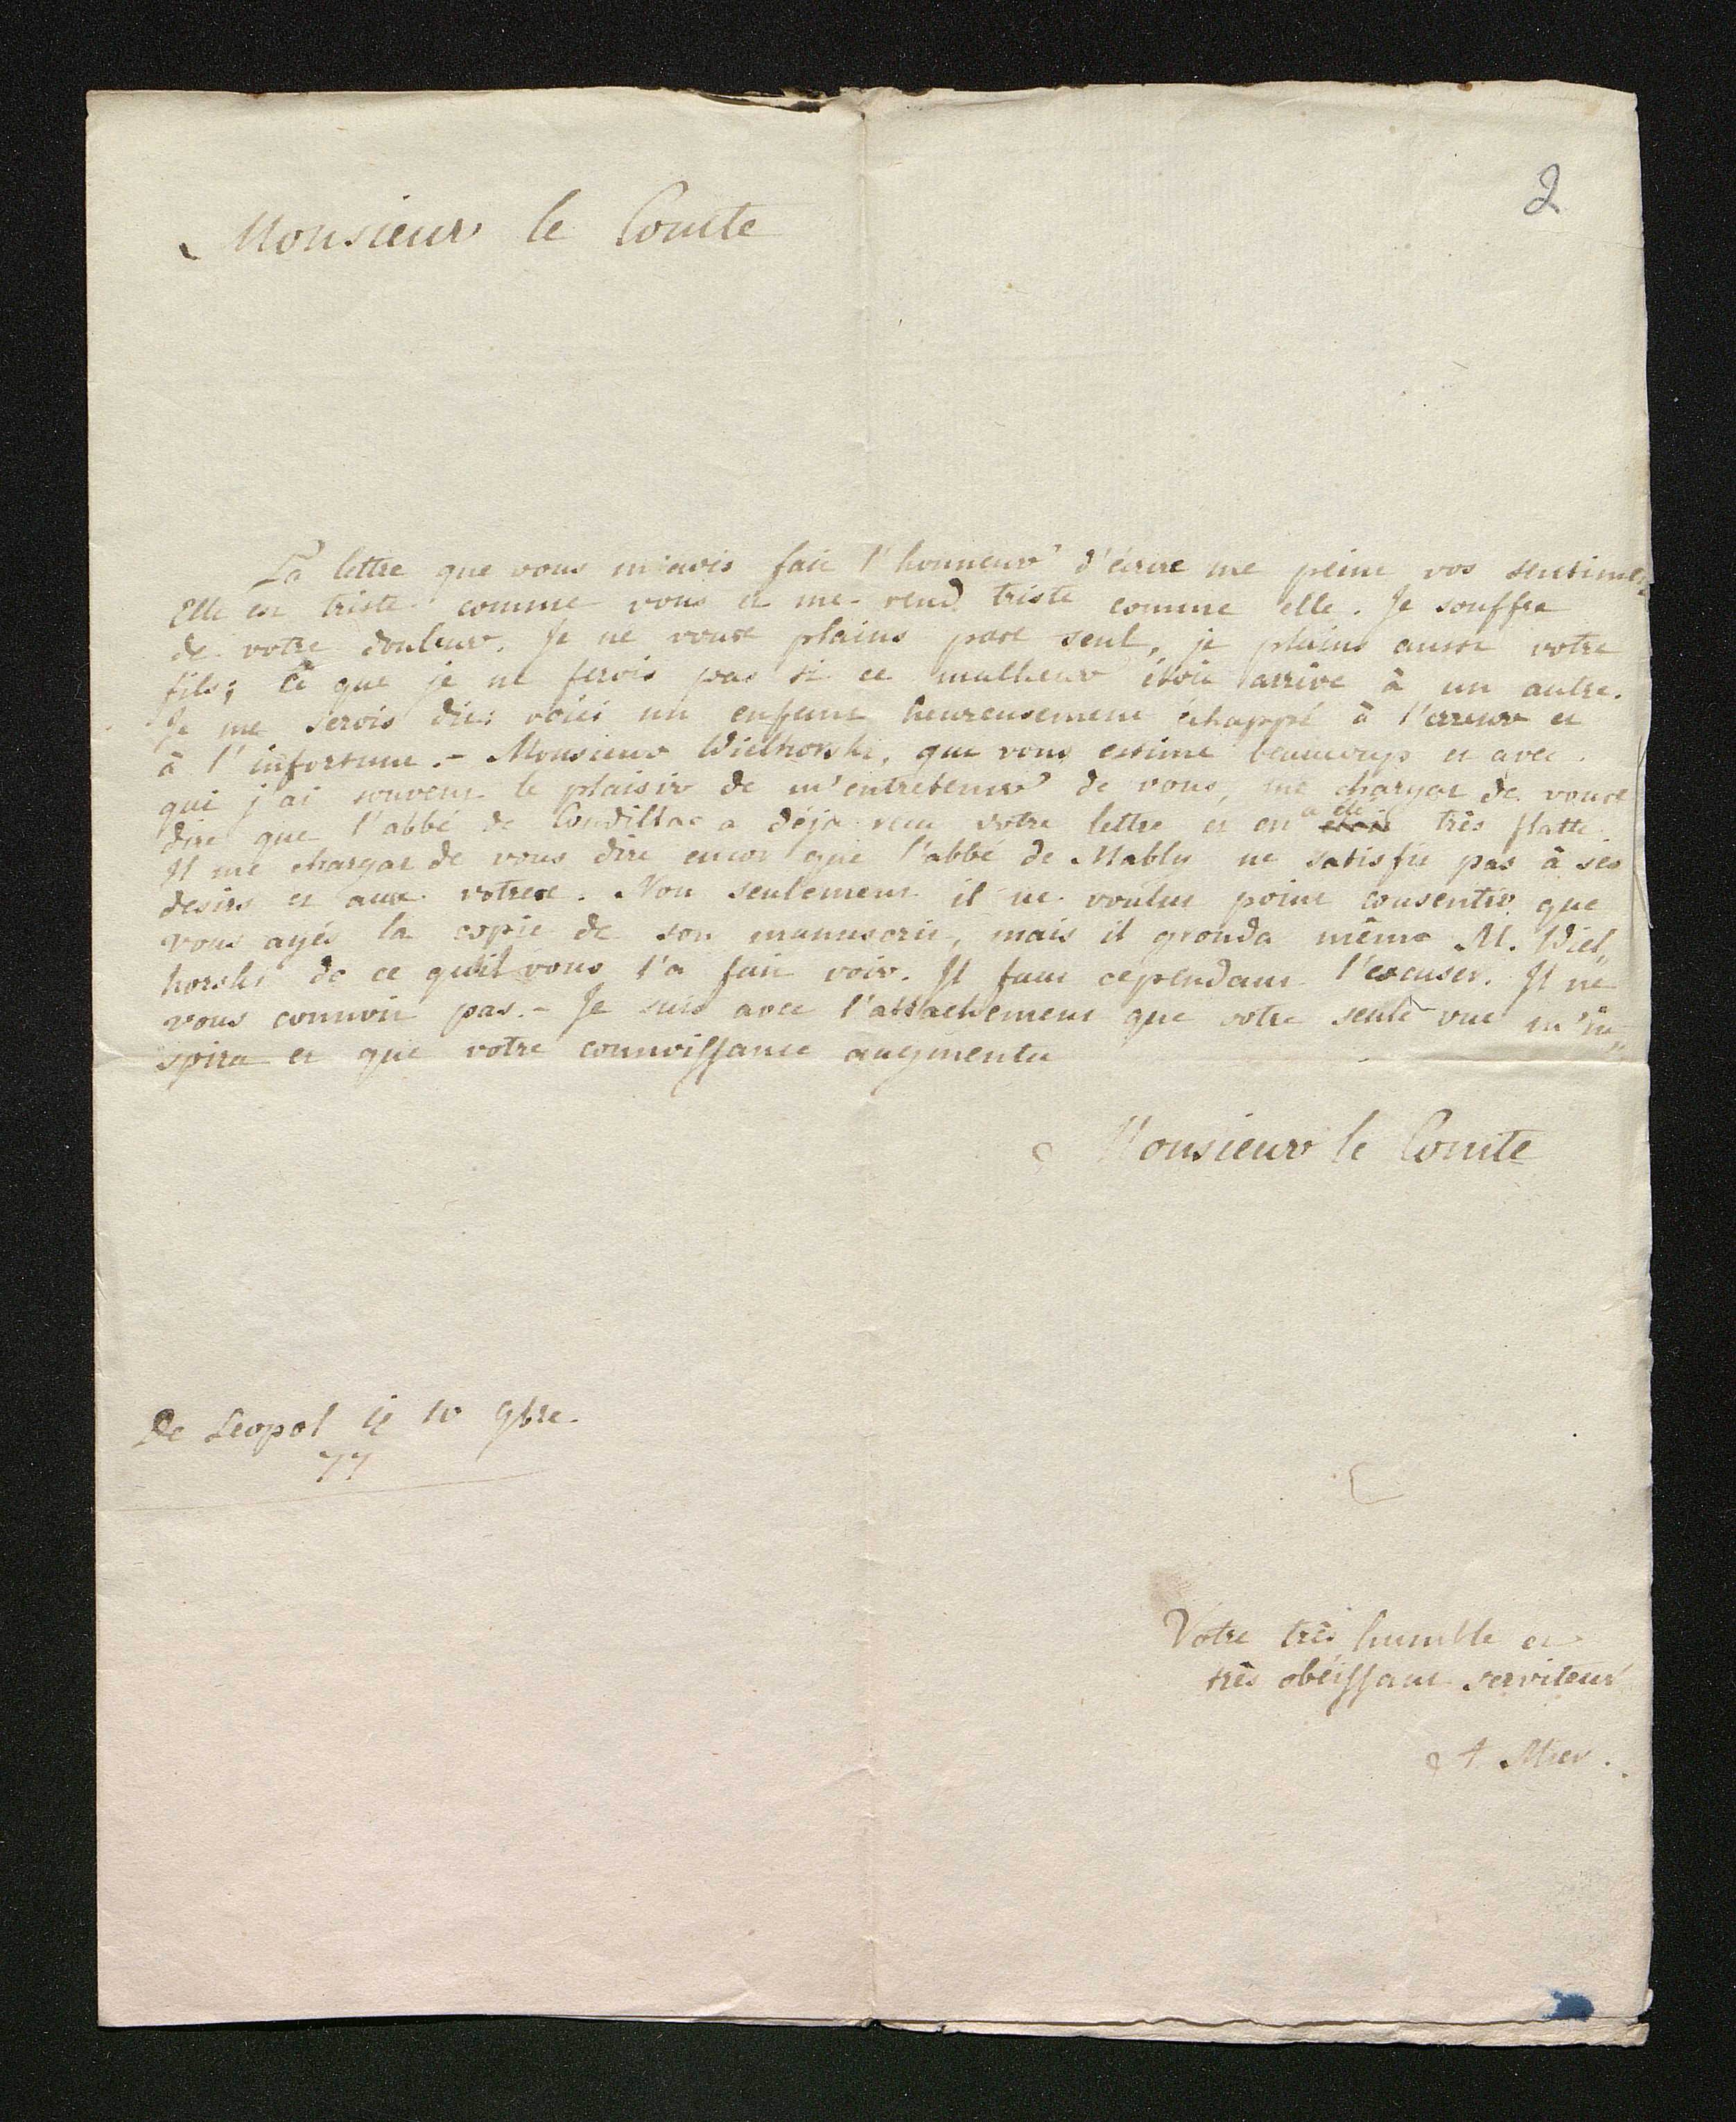 2
Monsieur le Comte
La lettre que vous m'avés fait l'honneur d'écrire me peint vos sentimen
Elle est triste comme vous et me rend triste comme elle. Je souffre
de votre douleur. Je ne vous plains pas seul, je plains aussi votre
fils; Ce que je ne ferois pas si ce malheur étoit arrivé à un autre.
Je me serois dit: voici un enfant heureusement échappé à l'erreur et
à l'infortune. - Monsieur Wielhorski, que vous estime beaucoup et avec
qui j'ai souvent le plaisir de m'entretenir de vous, me chargea de vous
dire que l'abbé de Condillac a déja reçu votre lettre et en a été etoit très flatté
Il me chargea de vous dire encor que l'abbé de Mably ne satisfit pas à ses
desirs et aux votres. Non seulement il ne voulut point consentir que
vous ayés la copie de son manuscrit, mais il gronda même M. Wiel„
horski de ce qu'il vous l'a fait voir. Il faut cependant l'excuser. Il ne
vous connoit pas. - Je suis avec l'attachement que votre seule vue m'in„
spira et que votre connoissance augmenta
Monsieur le Comte
De Leopol le 10 9bre
77
Votre très humble et
très obéissant serviteur
A Mier.